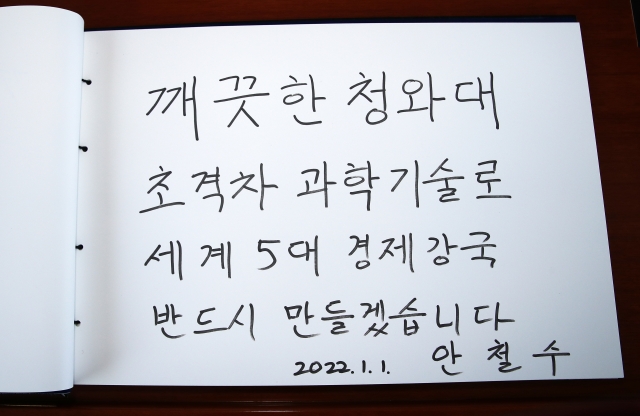 깨끗한 청와대
초격차 과학기술로
세계 5대 경제강국
반드시 만들겠습니다
2022.1.1. 안철수